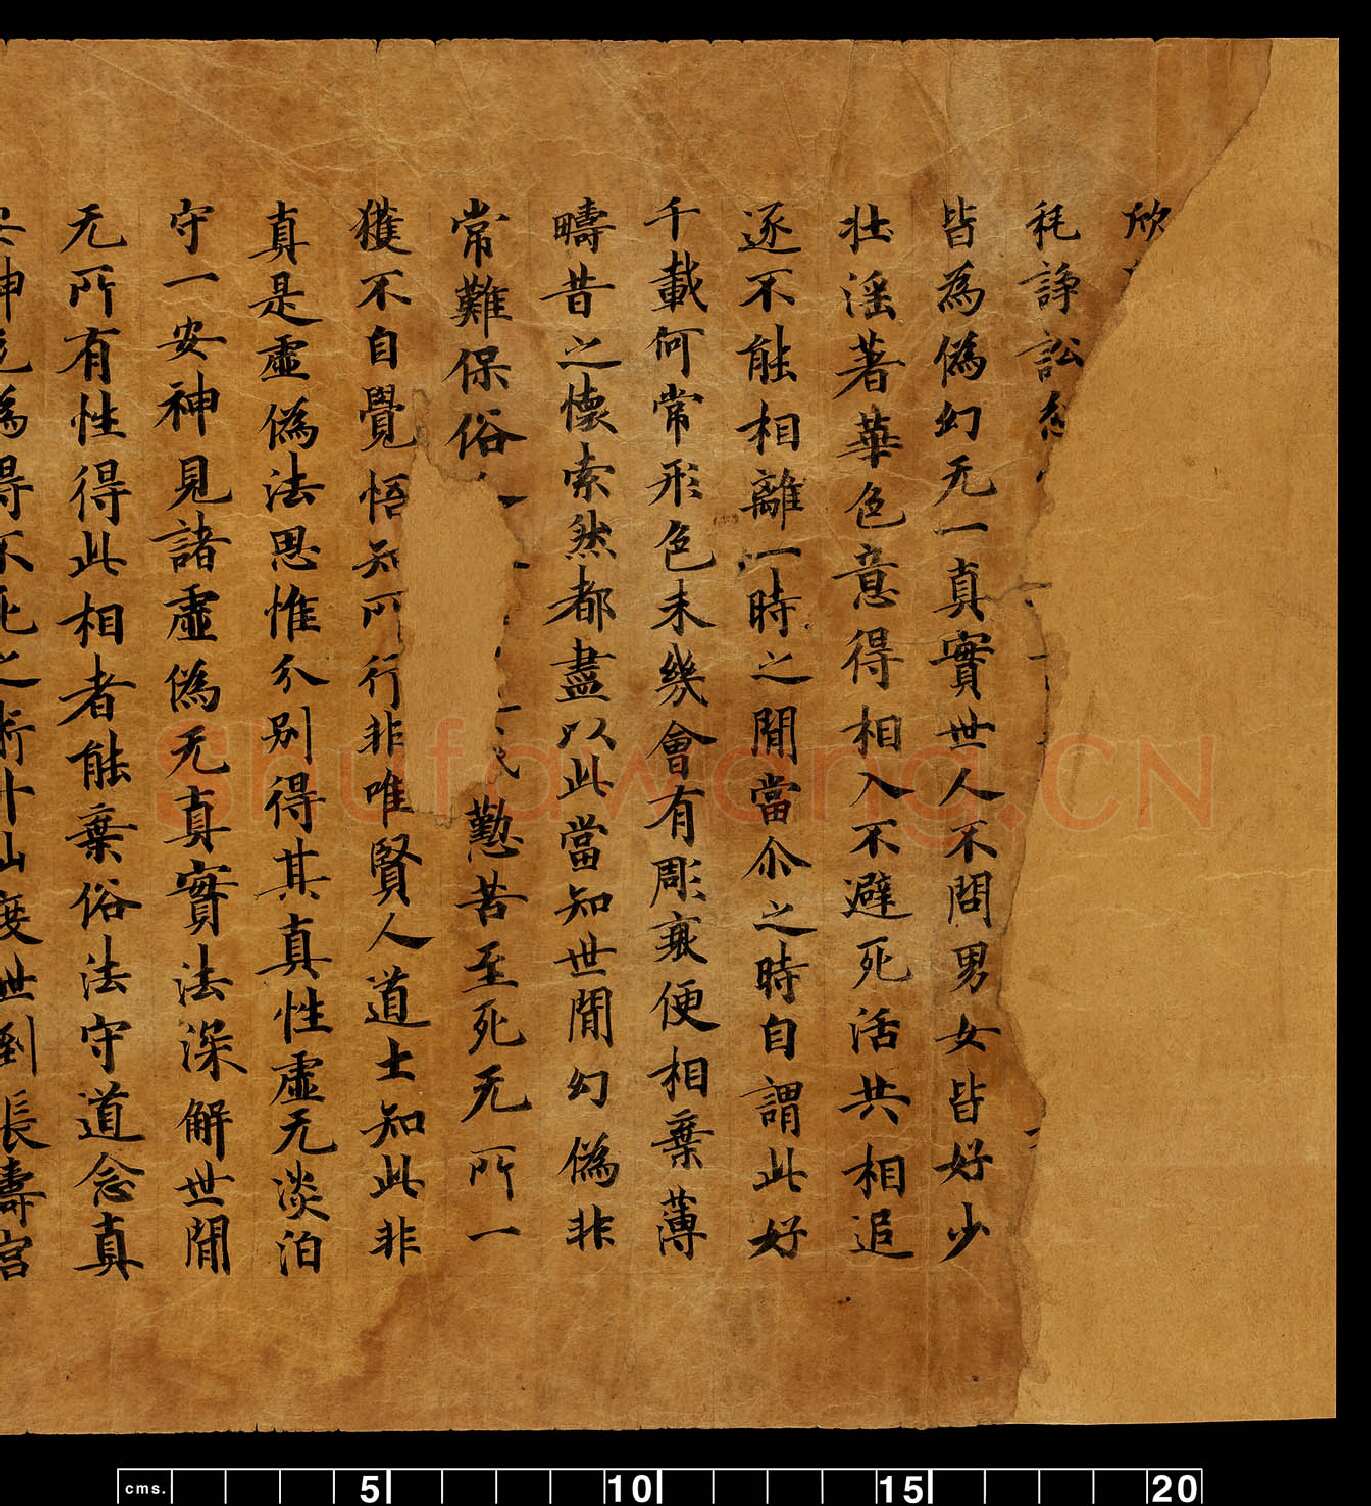 欣
秏諍訟
皆為偽幻无一真實世人不問男女皆好少
壮淫著華色意得相入不避死活共相追
逐不能相離一時之間當尒之時自謂此好
千載何常形色未幾會有彫衰便相棄薄
疇昔之懷索然都盡以此當知世間幻偽非
常難保俗懃苦至死无所一
獲不自覺悟知所行非唯賢人道士知此非
真是虛偽法思惟分別得其真性虛无淡泊
守一安神見諸虛偽无真實法深解世間
无所有性得此相者能棄俗法守道念真
安神為得不死之術升仙度世到長壽宮
Shufawang.CN
cms. 5 10 15 20